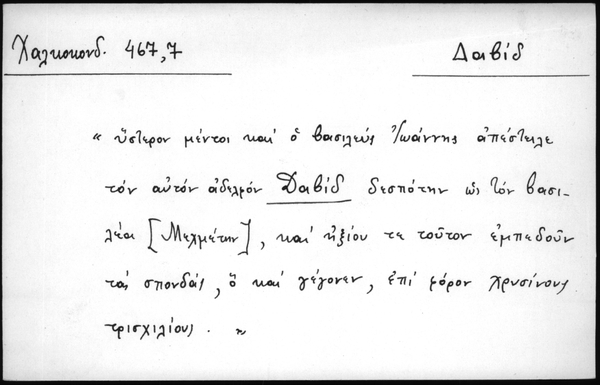 Χαλκοκονδ. 467,7
Δαβίδ
« ὕστερον μέντοι καί ὁ βασιλεύς Ἰωάννης ἀπέστειλε
τόν αὐτόν ἀδελφόν Δαβίδ δεσπότην ὡς τόν βασι-
λέα [Μεχμέτην], καί ἠξίου τε τοῦτον ἐμπεδοῦν
τάς σπονδάς, ὅ καί γέγονεν, ἐπί φόρον χρυσίνους
τρισχιλίους. »